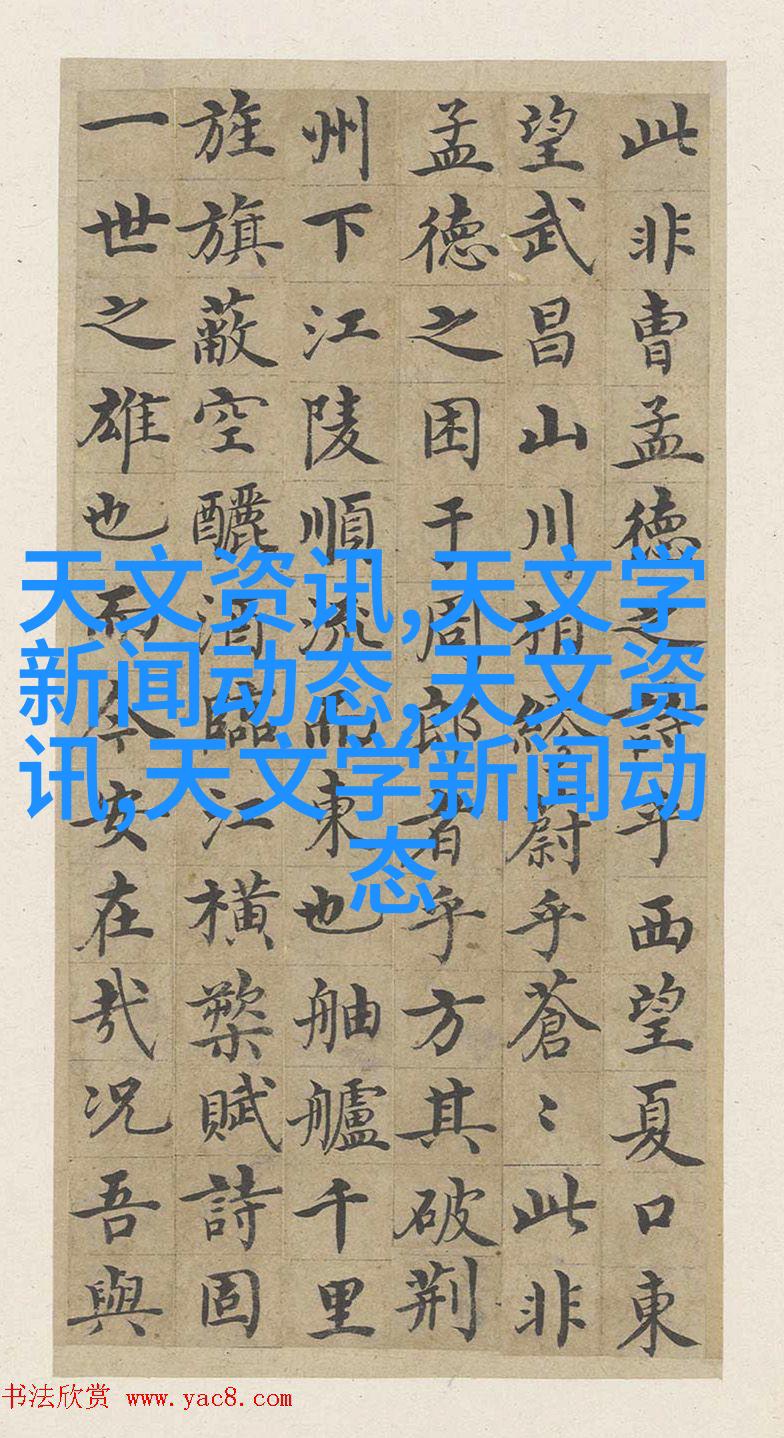 此非曹孟德之詩乎西望夏口東
望武昌山川相繆蔚乎蒼〻此非
孟德之困于周郎者乎方其破荆
州下江陵順流而東也舳艫千里
旌旗蔽空釃酒臨江横槊賦詩固
一世之雄也而今安在哉况吾與
天文资讯,天文学
新闻动态,天文资
讯,天文学新闻动
态
书法欣赏 www.yac8.com